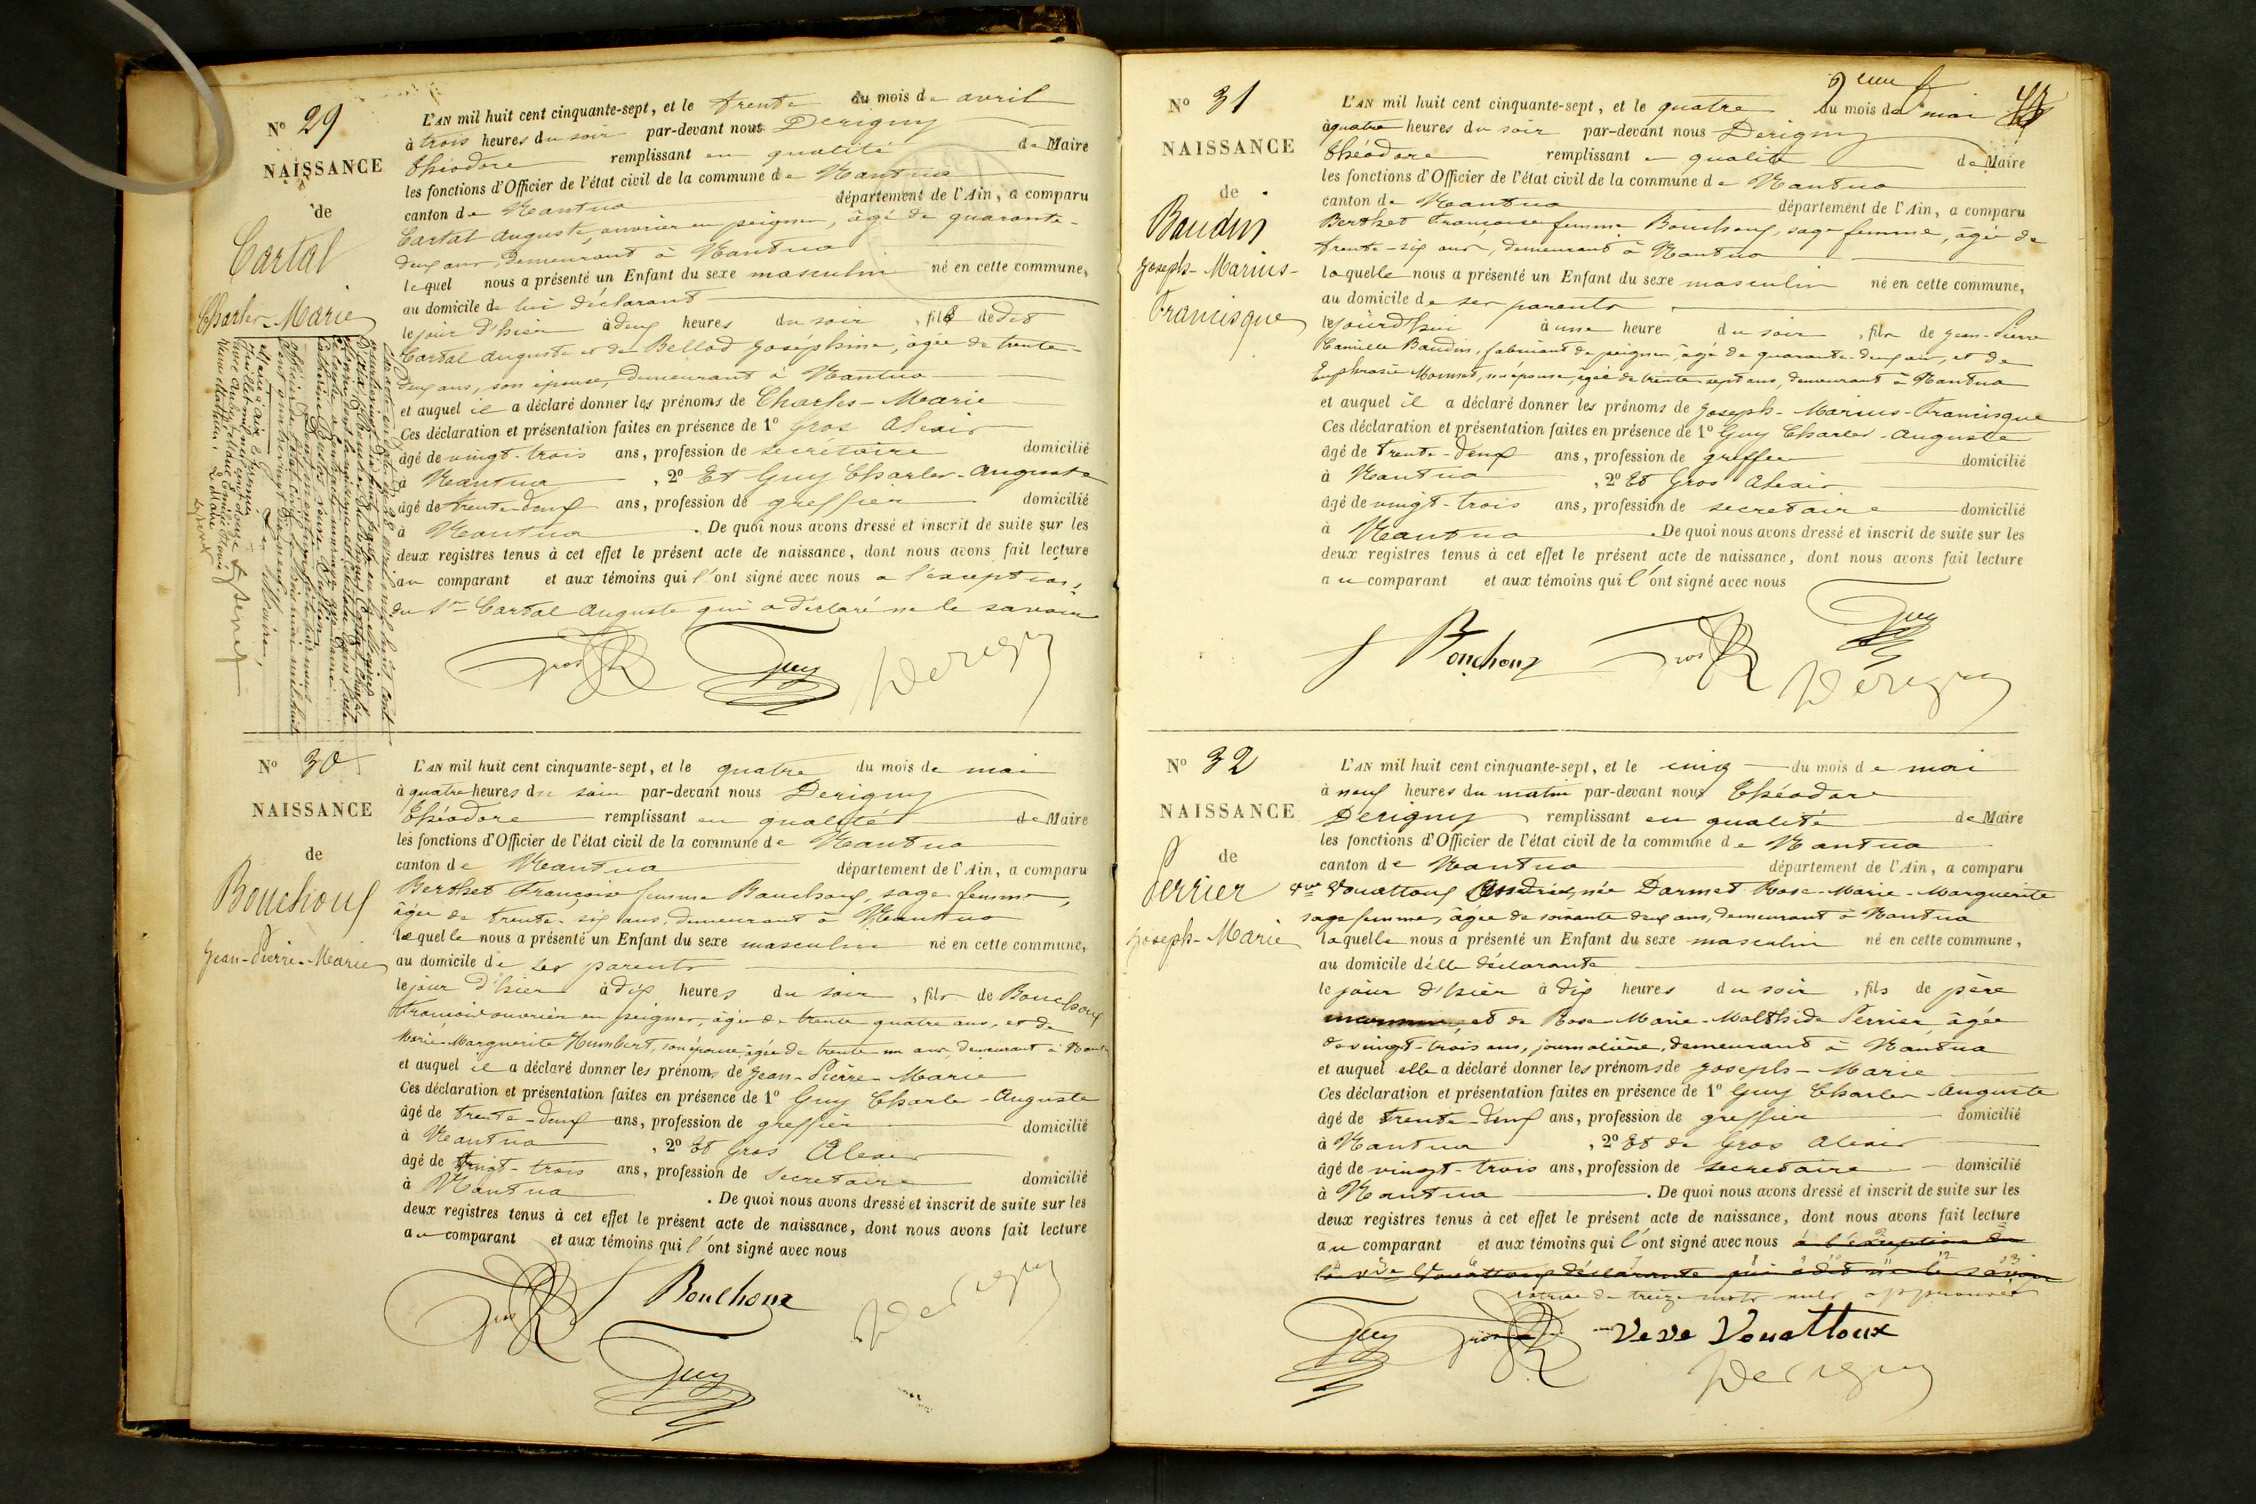 N° 29
NAISSANCE
de
Cartal
Charles-Marie
L'AN mil huit cent cinquante-sept, et le trente du mois de avril
à trois heures du soir par-devant nous Derigny
Théodore remplissant en qualité de Maire
les fonctions d'Officier de l'état civil de la commune de Nantua
canton de Nantua département de l'Ain, a comparu
Cartal Auguste, ouvrier en peignes, âgé de quarante-
deux ans, demeurant à Nantua
lequel nous a présenté un Enfant du sexe masculin né en cette commune,
au domicile de lui déclarant
le jour d'hier à deux heures du soir, fils de dit
Cartal Auguste et de Bellod Joséphine, âgée de trente-
deux ans, son épouse, demeurant à Nantua
et auquel il a déclaré donner les prénoms de Charles-Marie
Ces déclaration et présentation faites en présence de 1° Gros Alexis
âgé de vingt-trois ans, profession de secrétaire domicilié
à Nantua, 2° Et Guy Charles-Auguste
âgé de trente-deux ans, profession de greffier domicilié
à Nantua. De quoi nous avons dressé et inscrit de suite sur les
deux registres tenus à cet effet le présent acte de naissance, dont nous avons fait lecture
au comparant et aux témoins qui l'ont signé avec nous a l'exception,
du Sr Cartal Auguste qui a déclaré ne le savoir
Gros Guy Derigny
N° 30
NAISSANCE
de
Bouchoux
Jean-Pierre-Marie
L'AN mil huit cent cinquante-sept, et le quatre du mois de mai
à quatre heures du soir par-devant nous Derigny
Théodore remplissant en qualité de Maire
les fonctions d'Officier de l'état civil de la commune de Nantua
canton de Nantua département de l'Ain, a comparu
Berthet Françoise femme Bouchoux, sage femme,
âgée de trente-six ans, demeurant à Nantua
laquelle nous a présenté un Enfant du sexe masculin né en cette commune,
au domicile de ses parents
le jour d'hier à dix heures du soir, fils de Bouchoux
François ouvrier en peignes, âgé de trente quatre ans, et de
Marie-Marguerite Humbert, son épouse, âgée de trente un ans, demeurant à
et auquel il a déclaré donner les prénoms de Jean-Pierre-Marie
Ces déclaration et présentation faites en présence de 1° Guy Charles-Auguste
âgé de trente-deux ans, profession de greffier domicilié
à Nantua, 2° Et Gros Alexis
âgé de vingt-trois ans, profession de secrétaire domicilié
à Nantua. De quoi nous avons dressé et inscrit de suite sur les
deux registres tenus à cet effet le présent acte de naissance, dont nous avons fait lecture
au comparant et aux témoins qui l'ont signé avec nous
Gros f Bouchoux Derigny
Guy
N° 31
NAISSANCE
de
Baudin
Joseph-Marius-
Francisque
L'AN mil huit cent cinquante-sept, et le quatre du mois de mai
à quatre heures du soir par-devant nous Derigny
Théodore remplissant en qualité de Maire
les fonctions d'Officier de l'état civil de la commune de Nantua
canton de Nantua département de l'Ain, a comparu
Berthet Françoise femme Bouchoux, sage femme, âgée de
trente-six ans, demeurant à Nantua
laquelle nous a présenté un Enfant du sexe masculin né en cette commune,
au domicile de ses parents
lejourd'hui à une heure du soir, fils de Jean-Pierre
Camille Baudin, fabricant de peignes, âgé de quarante-deux ans, et de
Euphrasie son épouse, âgée de trente sept ans, demeurant à Nantua
et auquel il a déclaré donner les prénoms de Joseph-Marius-Francisque
Ces déclaration et présentation faites en présence de 1° Guy Charles-Auguste
âgé de trente-deux ans, profession de greffier domicilié
à Nantua, 2° Et Gros Alexis
âgé de vingt-trois ans, profession de secretaire domicilié
à Nantua. De quoi nous avons dressé et inscrit de suite sur les
deux registres tenus à cet effet le présent acte de naissance, dont nous avons fait lecture
au comparant et aux témoins qui l'ont signé avec nous
f Bouchoux Gros Guy
Derigny
N° 32
NAISSANCE
de
Perrier
Joseph-Marie
L'AN mil huit cent cinquante-sept, et le cinq du mois de mai
à neuf heures du matin par-devant nous Théodore
Derigny remplissant en qualité de Maire
les fonctions d'Officier de l'état civil de la commune de Nantua
canton de Nantua département de l'Ain, a comparu
Vve Vouattoux née Darmet Rose-Marie-Marguerite
sage femme, âgée de soixante deux ans, demeurant à Nantua
laquelle nous a présenté un Enfant du sexe masculin né en cette commune,
au domicile d'elle déclarante
le jour d'hier à dix heures du soir, fils de père
inconnu, et de Rose-Marie-Malthide Perrier, âgée
de vingt-trois ans, journalière, demeurant à Nantua
et auquel elle a déclaré donner les prénoms de Joseph-Marie
Ces déclaration et présentation faites en présence de 1° Guy Charles-Auguste
âgé de trente-deux ans, profession de greffier domicilié
à Nantua, 2° Et de Gros Alexis
âgé de vingt-trois ans, profession de secretaire domicilié
à Nantua. De quoi nous avons dressé et inscrit de suite sur les
deux registres tenus à cet effet le présent acte de naissance, dont nous avons fait lecture
au comparant et aux témoins qui l'ont signé avec nous à l'exception de
la Vve Vouattoux déclarante qui a dit ne le savoir
rature de treize mots nuls approuvés
Guy Gros Veve Vouattoux
Derigny